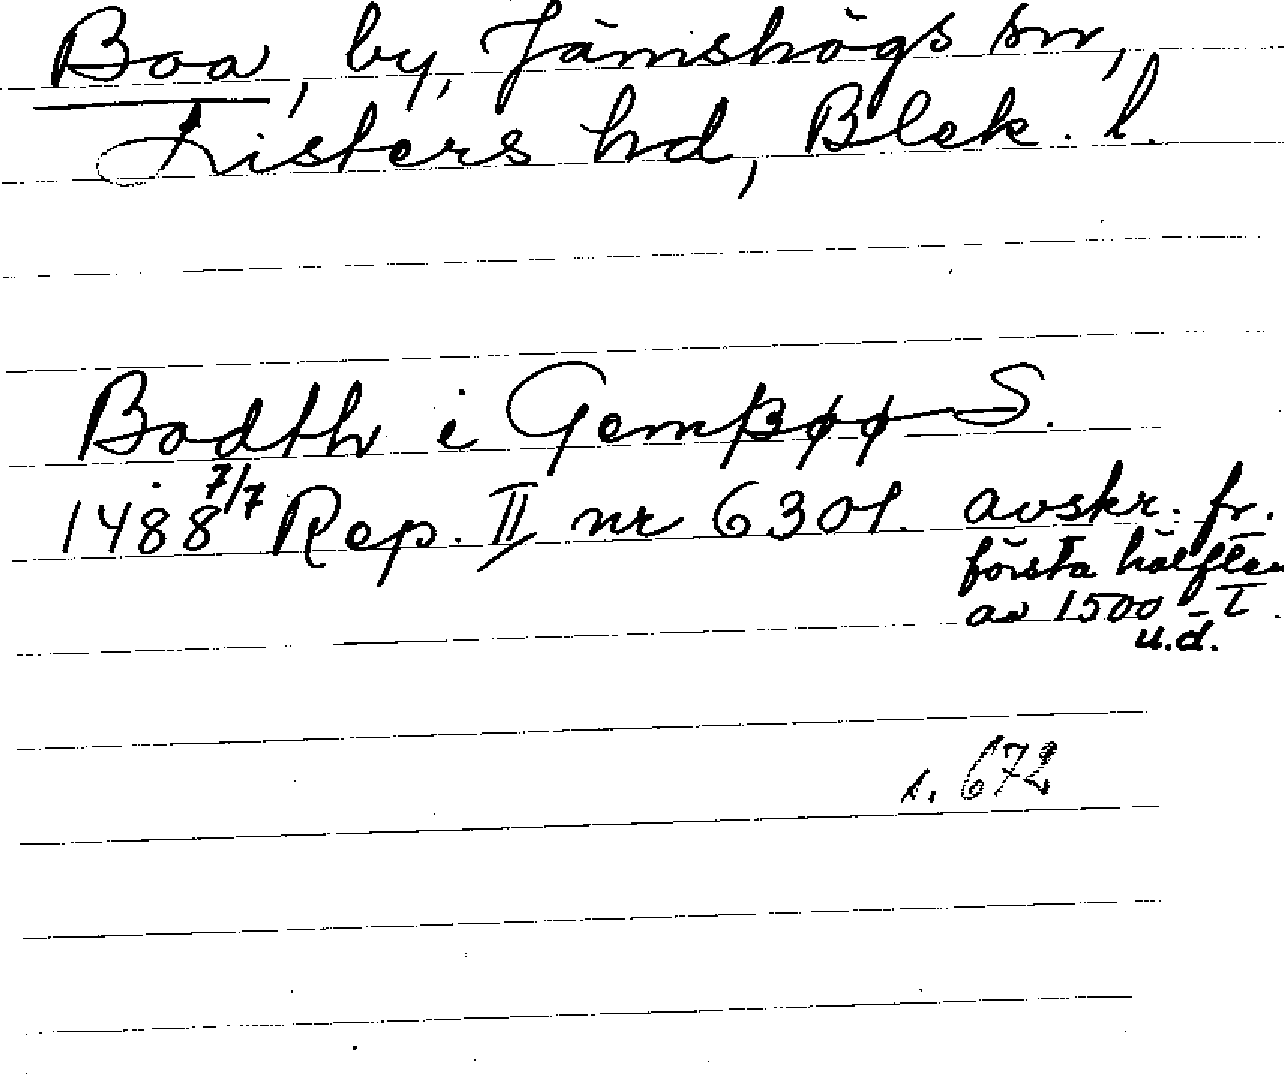 Boa, by, Jämshögs sn,
Listers hd, Blek. l.
Bodth i Gemßøø S.
1488 7/7 Rep. II nr 6301. avskr. fr.
första hälften
av 1500-t.
u.d.
s. 672